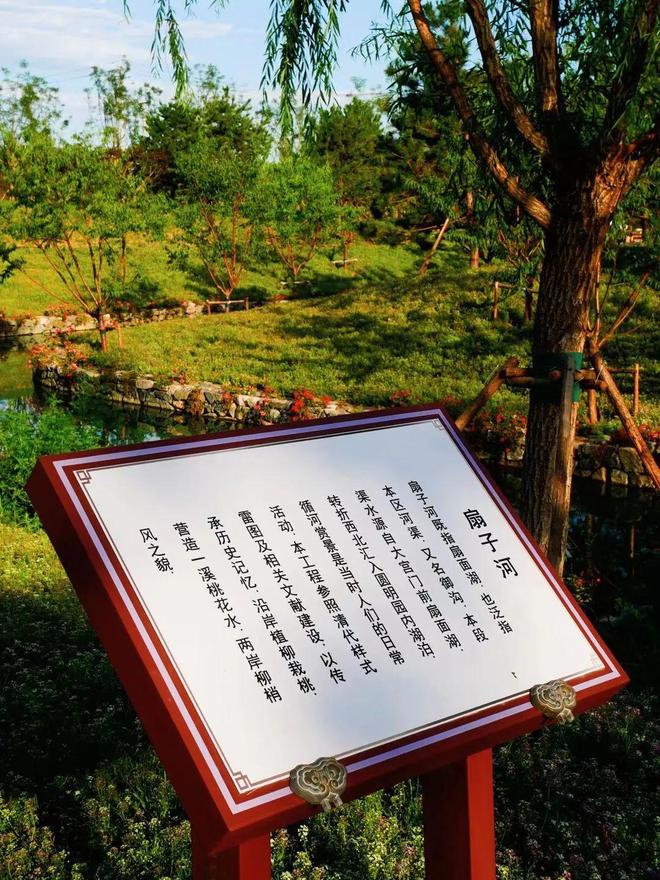 扇子河
扇子河既指扇面湖，也泛指
本区河渠，又名御沟，本段
渠水源自大宫门前扇面湖，
转折西北汇入圆明园内湖泊，
循河赏景是当时人们的日常
活动，本工程参照清代样式
雷图及相关文献建设，以传
承历史记忆，沿岸植柳栽桃，
营造一溪桃花水，两岸柳梢
风之貌。